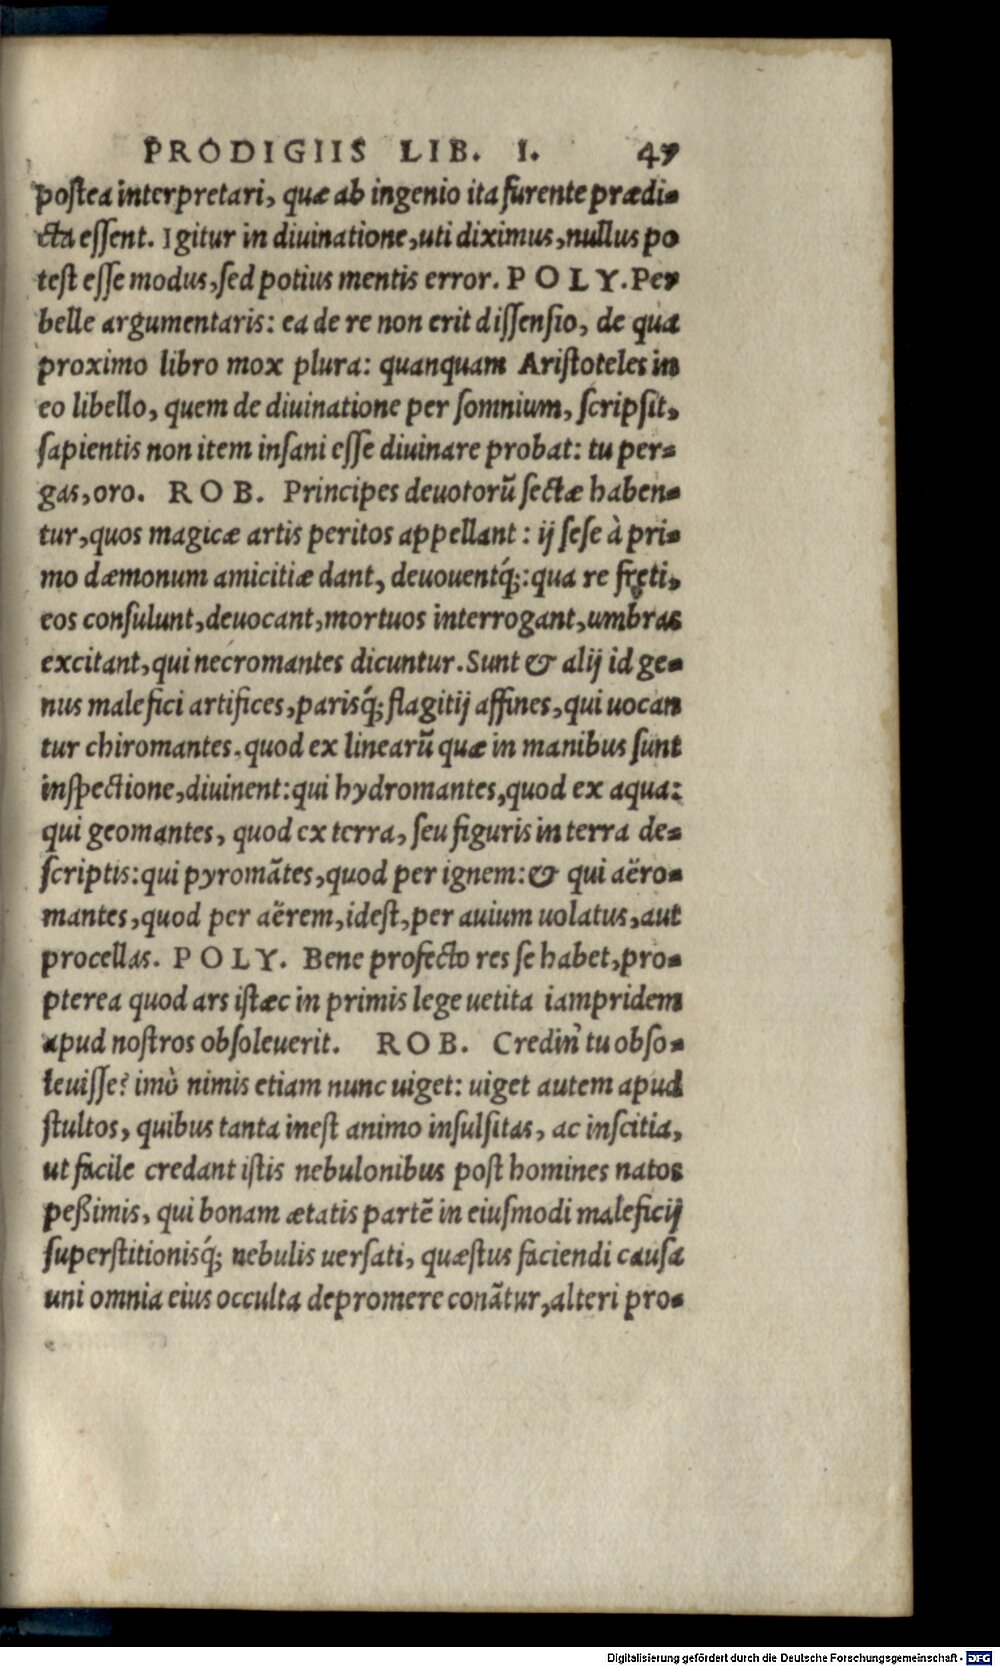 PRODIGIIS LIB. I. 47
postea interpretari, quæ ab ingenio ita furente prædi-
cta essent. Igitur in diuinatione, uti diximus, nullus po
test esse modus, sed potius mentis error. POLY. Per
belle argumentaris: ea de re non erit dissensio, de qua
proximo libro mox plura: quanquam Aristoteles in
eo libello, quem de diuinatione per somnium, scripsit,
sapientis non item insani esse diuinare probat: tu per-
gas, oro. ROB. Principes deuotorũ sectæ haben-
tur, quos magicæ artis peritos appellant: ij sese à pri-
mo dæmonum amicitiæ dant, deuouentq́;: qua re fręti,
eos consulunt, deuocant, mortuos interrogant, umbras
excitant, qui necromantes dicuntur. Sunt & alij id ge-
nus malefici artifices, parisq́; flagitij affines, qui uocan
tur chiromantes. quod ex linearũ quæ in manibus sunt
inspectione, diuinent: qui hydromantes, quod ex aqua:
qui geomantes, quod ex terra, seu figuris in terra de-
scriptis: qui pyromãtes, quod per ignem: & qui aëro-
mantes, quod per aërem, idest, per auium uolatus, aut
procellas. POLY. Bene profecto res se habet, pro-
pterea quod ars istæc in primis lege uetita iampridem
apud nostros obsoleuerit. ROB. Credin' tu obso-
leuisse? imò nimis etiam nunc uiget: uiget autem apud
stultos, quibus tanta inest animo insulsitas, ac inscitia,
ut facile credant istis nebulonibus post homines natos
peßimis, qui bonam ætatis partẽ in eiusmodi maleficij
superstitionisq́; nebulis uersati, quæstus faciendi causa
uni omnia eius occulta depromere conãtur, alteri pro-
Digitalisierung gefördert durch die Deutsche Forschungsgemeinschaft - DFG